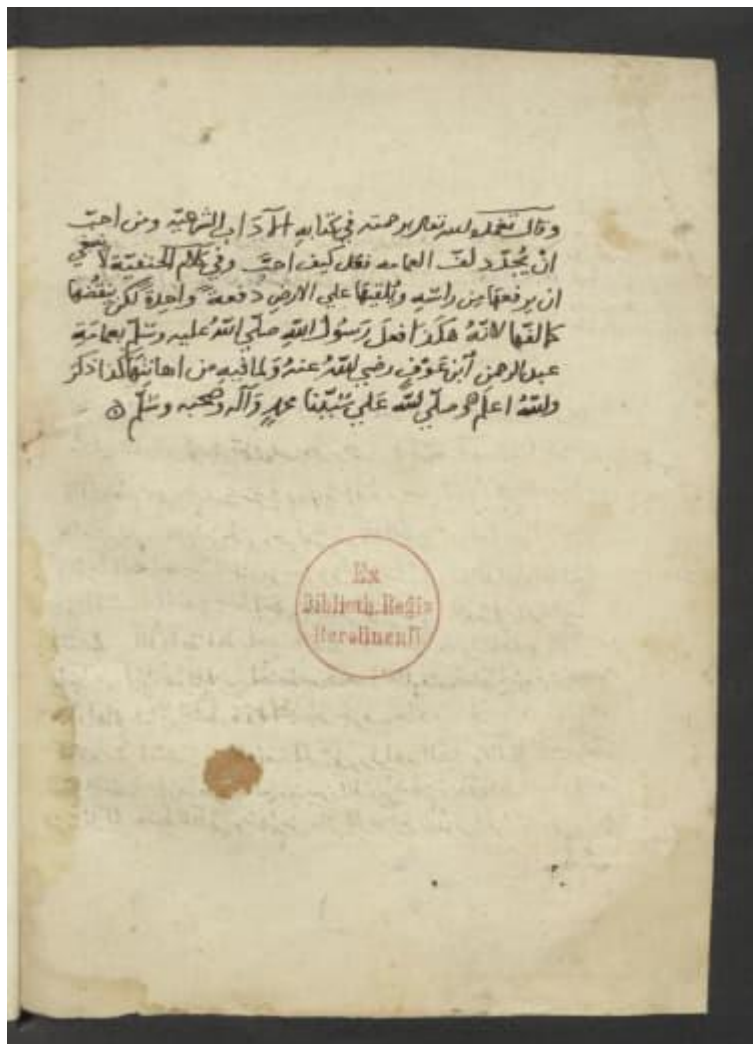 وقال تغمده الله تعالى برحمته في كتابه الآداب الشرعية ومن احب
ان يجدد لف العمامه فعل كيف احب وفي كلام الحنفية لا ينبغي
ان يرفعها من راسه ويلقيها علي الارض دفعة واحدة لكن ينقضها
كما لفها لانه هكذا فعل رسول الله صلي الله عليه وسلم بعمامة
عبدالرحمن ابن عوف رضي الله عنه ولما فيه من اهانتها كذا ذكر
والله اعلم وصلي الله علي سيدنا محمد وآله وصحبه وسلم
Ex
Biblioth. Regia
Berolinensi.